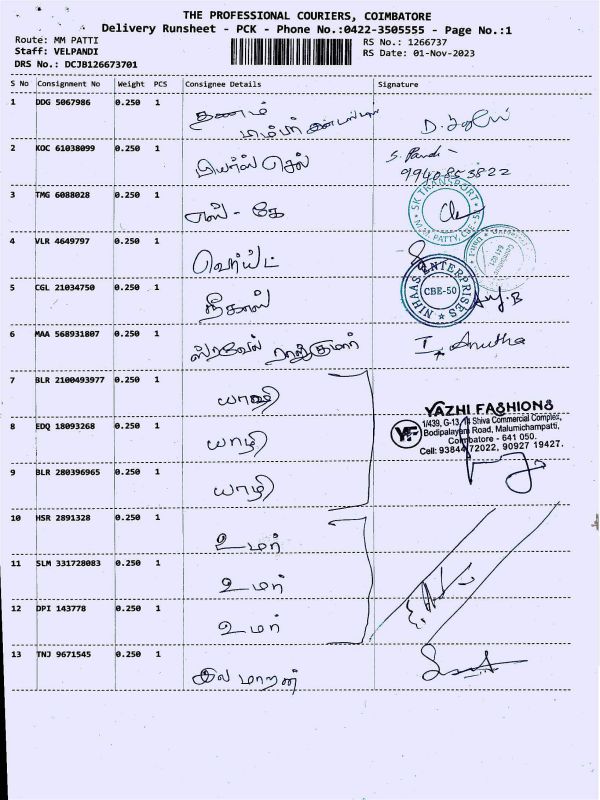 THE PROFESSIONAL COURIERS, COIMBATORE
Delivery Runsheet - PCK - Phone No.:0422-3505555 - Page No.:1
Route: MM PATTI RS No.: 1266737
Staff: VELPANDI RS Date: 01-Nov-2023
DRS No.: DCJB126673701
S No Consignment No Weight PCS Consignee Details Signature
1 DDG 5067986 0.250 1
2 KOC 61038099 0.250 1 S. Pandi
9940853822
3 TMG 6088028 0.250 1 எஸ் - கே SK TRANSPORT M.M. PATTY, CBE-5
4 VLR 4649797 0.250 1
5 CGL 21034750 0.250 1 நீகாஸ் NIHAAS ENTERPRISES CBE-50
6 MAA 568931807 0.250 1 ராஜ்குமார் I. Anutha
7 BLR 2100493977 0.250 1 யாழி YAZHI FASHIONS
1/439, G-13,14 Shiva Commercial Complex,
8 EDQ 18093268 0.250 1 யாழி YF Bodipalayam Road, Malumichampatti,
Coimbatore - 641 050.
Cell: 93844 72022, 90927 19427.
9 BLR 280396965 0.250 1 யாழி
10 HSR 2891328 0.250 1 உமர்
11 SLM 331728083 0.250 1 உமர்
12 DPI 143778 0.250 1 உமர்
13 TNJ 9671545 0.250 1 இல மாறன்